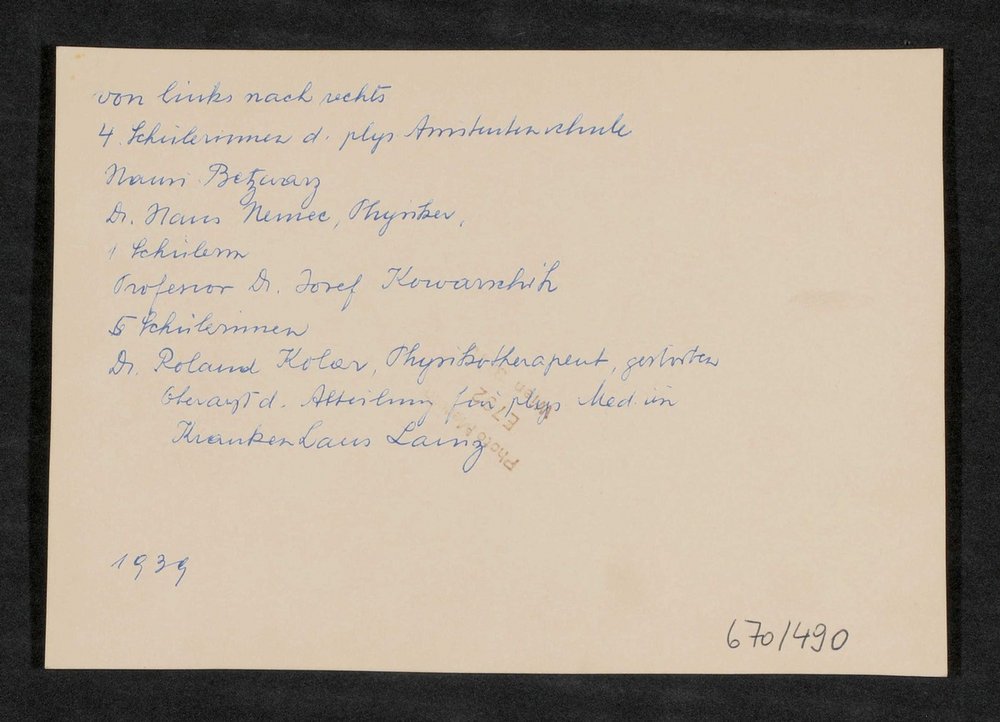 von links nach rechts
4 Schülerinnen d. phys Assistentenschule
Hansi Betzwarz
Dr. Hans Nemec, Physiker,
1 Schülerin
Professor Dr. Josef Kowarschik
5 Schülerinnen
Dr. Roland Kolar, Physikotherapeut, gestorben
Oberarzt d. Abteilung für phys Med. im
Krankenhaus Lainz
1939
670/490